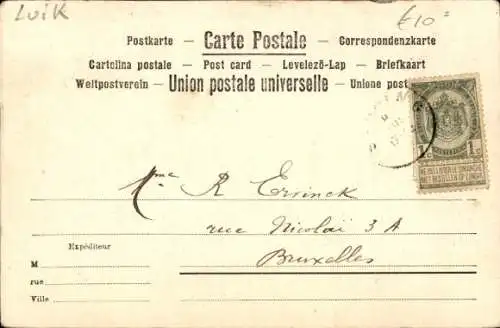 LUIK
€10=
Postkarte — Carte Postale — Correspondenzkarte
Cartolina postale — Post card — Levelező-Lap — Briefkaart
Weltpostverein — Union postale universelle — Unione post
1c 1c
NE PAS LIVRER LE DIMANCHE
NIET BESTELLEN OP ZONDAG
Mme R Errinck
rue Nicolaï 3 A
Bruxelles
Expéditeur
M
rue
Ville